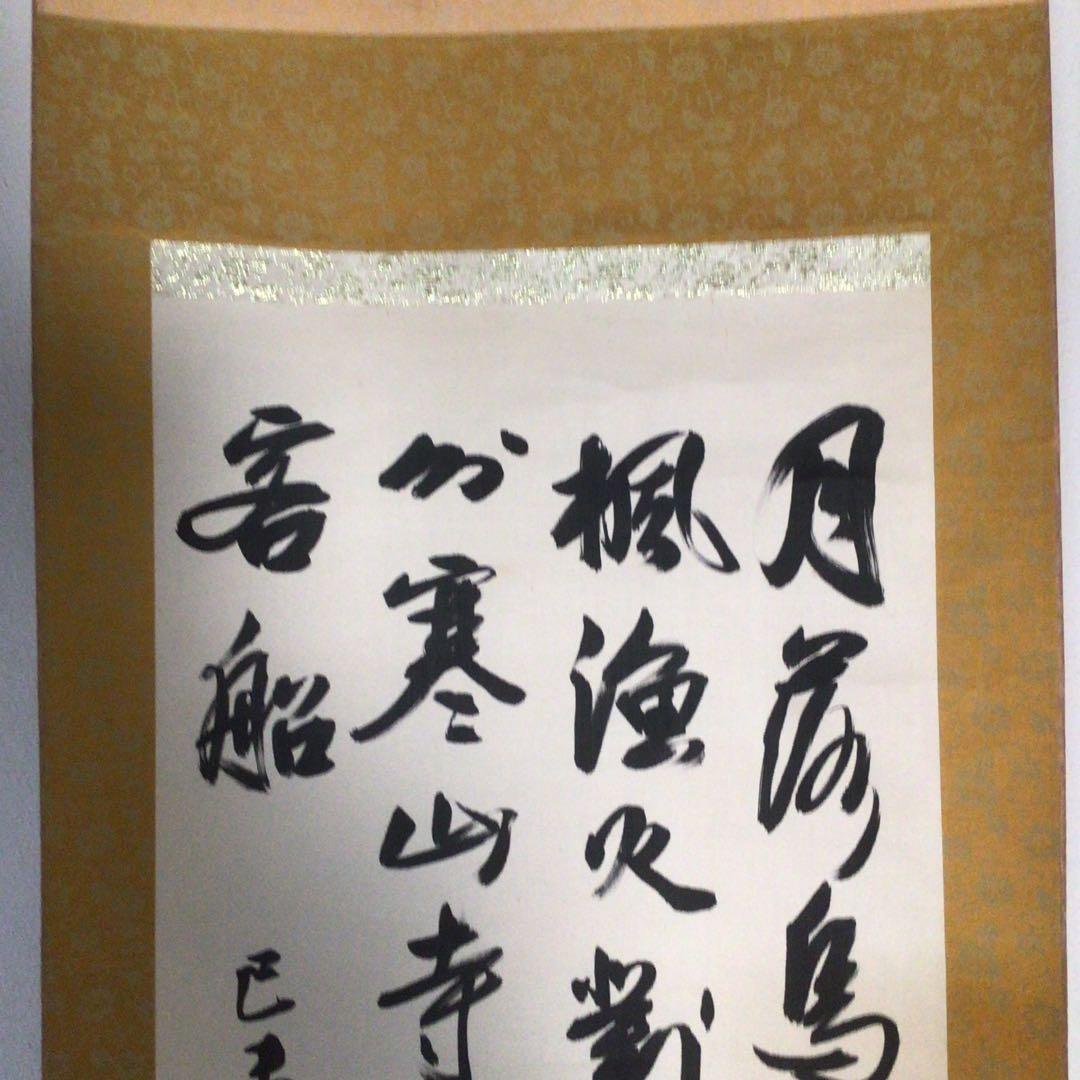 月落烏
楓漁火對
州寒山寺
客船 己